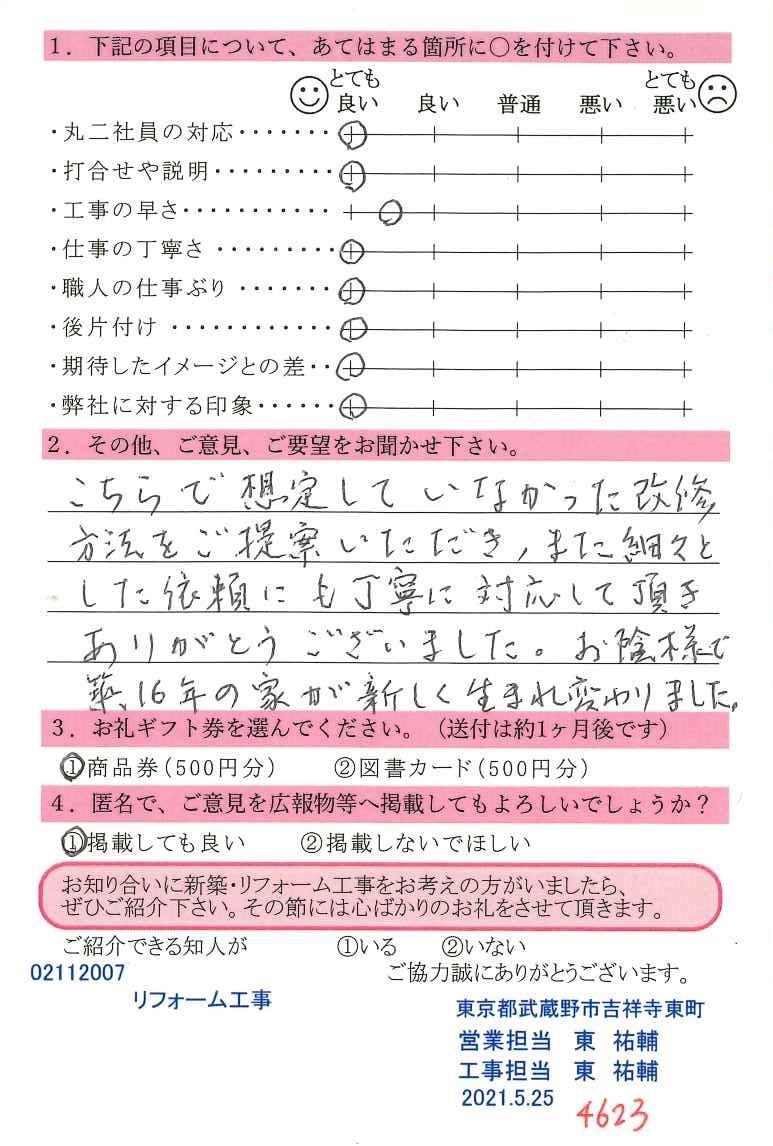 1．下記の項目について、あてはまる箇所に○を付けて下さい。
とても良い 良い 普通 悪い とても悪い
・丸二社員の対応・・・・・・・
・打合せや説明・・・・・・・・・
・工事の早さ・・・・・・・・・・・
・仕事の丁寧さ ・・・・・・・・・
・職人の仕事ぶり ・・・・・・・
・後片付け ・・・・・・・・・・・・
・期待したイメージとの差・・
・弊社に対する印象・・・・・・
2．その他、ご意見、ご要望をお聞かせ下さい。
こちらで想定していなかった改修
方法をご提案いただき，また細々と
した依頼にも丁寧に対応して頂き
ありがとうございました。お陰様で
築16年の家が新しく生まれ変わりました。
3．お礼ギフト券を選んでください。（送付は約1ヶ月後です）
①商品券（500円分） ②図書カード（500円分）
4．匿名で、ご意見を広報物等へ掲載してもよろしいでしょうか？
①掲載しても良い ②掲載しないでほしい
お知り合いに新築・リフォーム工事をお考えの方がいましたら、
ぜひご紹介下さい。その節には心ばかりのお礼をさせて頂きます。
ご紹介できる知人が ①いる ②いない
02112007 ご協力誠にありがとうございます。
リフォーム工事
東京都武蔵野市吉祥寺東町
営業担当 東 祐輔
工事担当 東 祐輔
2021.5.25
4623